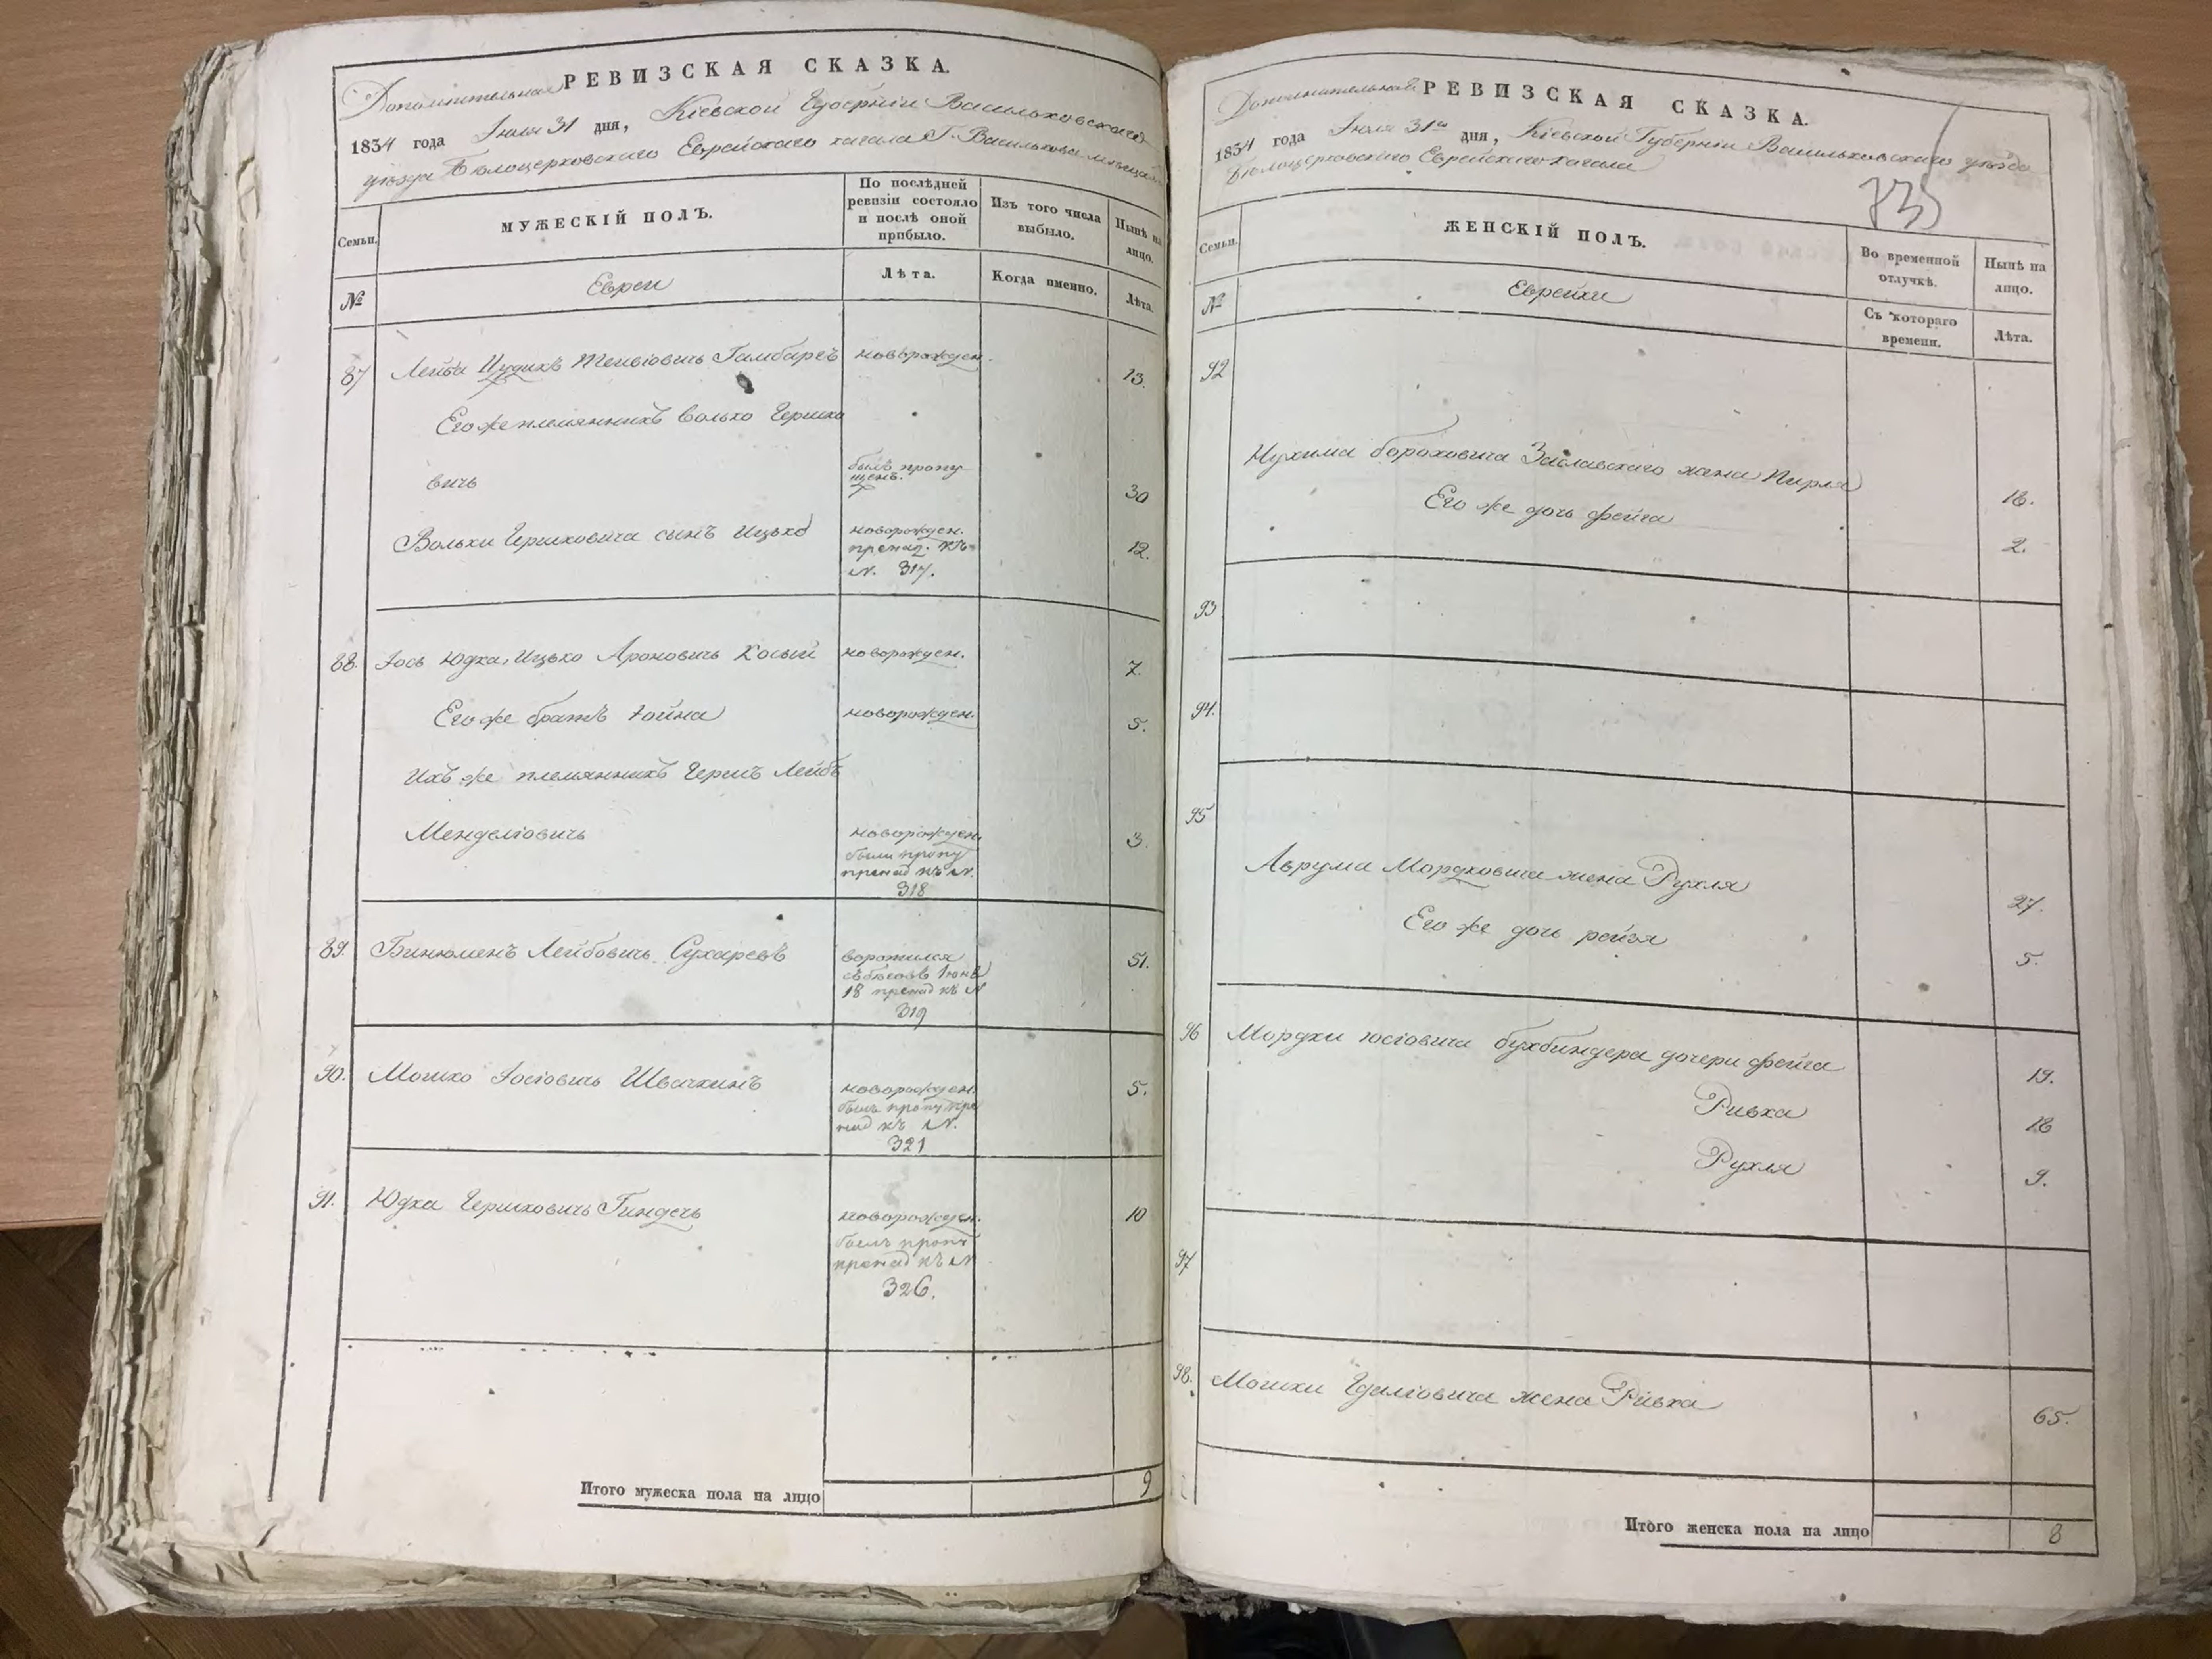 РЕВИЗСКАЯ СКАЗКА.
Дополнительная
1834 года Іюля 31 дня, Кіевской Губерніи Васильковскаго
уѣзда Бѣлоцерковскаго Еврейскаго кагала Г. Василькова
Семьи.
МУЖЕСКІЙ ПОЛЪ.
По послѣдней ревизіи состояло и послѣ оной прибыло.
Изъ того числа выбыло.
Нынѣ на лицо.
№
Евреи
Лѣта.
Когда именно.
Лѣта.
87 Лейба Іудикъ новорожден. 13.
Его же племянникъ Волько Гершко
вичъ былъ пропу
щенъ. 30
Вольки Гершковича сынъ Ицько новорожден. 12.
принад. къ
N. 317.
88. Іось Юдка, Ицько Ароновичъ Косый новорожден. 7.
Его же братъ Іойна новорожден. 5.
Ихъ же племянникъ Герсъ Лейбъ
Менделіовичъ новорожден. 3
были пропу
принад къ N.
318
89. Бинюменъ Лейбовичъ Сухаревъ воротился 51.
съ бѣговъ Іюня
18 принад къ N
319
90. Мошко Іосіовичъ Швачкинъ новорожден. 5.
былъ пропу при
над къ N.
321
91. Юдка Гершковичъ новорожден. 10
былъ проп
принад къ N
326.
Итого мужеска пола на лицо 9
РЕВИЗСКАЯ СКАЗКА.
Дополнительная
1834 года Іюля 31го дня, Кіевской Губерніи Васильковскаго уѣзда
Бѣлоцерковскаго Еврейскаго кагала
735
Семьи.
ЖЕНСКІЙ ПОЛЪ.
Во временной отлучкѣ.
Нынѣ на лицо.
№
Еврейки
Съ котораго времени.
Лѣта.
92
Нухима Бороховича Заславскаго жена Пирля 18.
Его же дочь Фейга 2.
93
94.
95
Аврума Мордковича жена Рухля 27.
Его же дочь Рейзя 5.
96 Мордки Іосіовича Бухбиндера дочери Фейга 19.
Ривка 18
Рухля 9.
97
98. Мошки Гдаліовича жена Ривка 65.
Итого женска пола на лицо 8